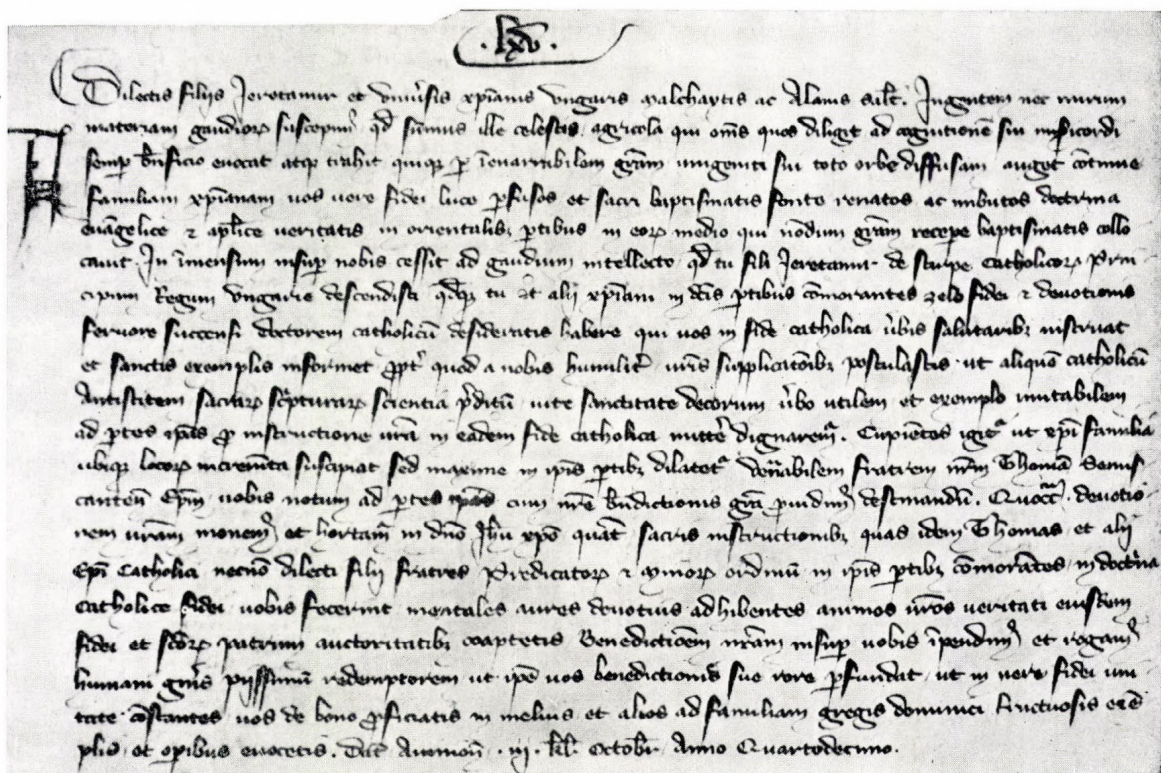 .lxv.
Dilectis filijs Jeretamir et univsis xpianis ungaris malchaytis ac Alanis salt. Ingentem nec mirum
materiam gaudior suscepim qd sumus ille celestis agricola qui oms quos diligit ad cognitione sui misicordi
semp bnficio evocat atq trahit quiq p ienarribilem gram unigeniti sui toto orbe diffusam auget cotinue
familiam xpianam vos vere fidei luce pfusos et sacri baptismatis fonte renatos ac imbutos doctrina
evagelice et aplice veritatis in orientalib ptibus in eor medio qui nodum gram recepe baptismatis collo
cavit. In imensum insup nobis cessit ad gaudium intellecto qd tu fili Jeretamir de stirpe Catholicor Prin
cipum Regum Ungarie descendisti qdq tu et alij xpiani in dcis ptibus comorantes zelo fidei et devotionis
fervore succensi doctorem catholicu desideratis habere qui vos in fide catholica vbis salutarib instruat
et sanctis exemplis informet ppt quod a nobis humilit vris supplicatoib postulastis ut alique catholicu
Antistitem sacrar scpturar scientia pditu vite sanctitate decorum vbo utilem et exemplo imitabilem
ad ptes ipas pro instructione vra in eadem fide catholica mitte dignarem. Cupientes igit ut xpi familia
ubiq locor increnta suscipiat sed maxime in ipis ptib dilatet venabilem fratrem nrm Thoma Semis
canten Epm vobis notum ad ptes ipas cum nre bndictionis gra pvidim destinandu. Quocca devotio
nem vram monem et hortam in dno Jhu xpo quat sacris instructionib quas idem Thomas et alij
Epi Catholici necno dilecti filij fratres Predicator et minor ordinu in ipis ptib comorates in doctrina
Catholice fidei vobis fecerint mentales aures devotius adhibentes animos vros veritati eiusdem
fidei et scor patrum auctoritatib coaptetis Benedictioem nram insup vobis ipendim et rogam
humani gnis piissimu redemptorem ut ipe vos benedictionis sue rore pfundat ut in vere fidei uni
tate costantes vos de bono pficiatis in melius et alios ad familiam gregis dominici fructuosis exe
plis et opibus evocetis. Dat Avinion .iij. kl. Octobr Anno Quartodecimo.